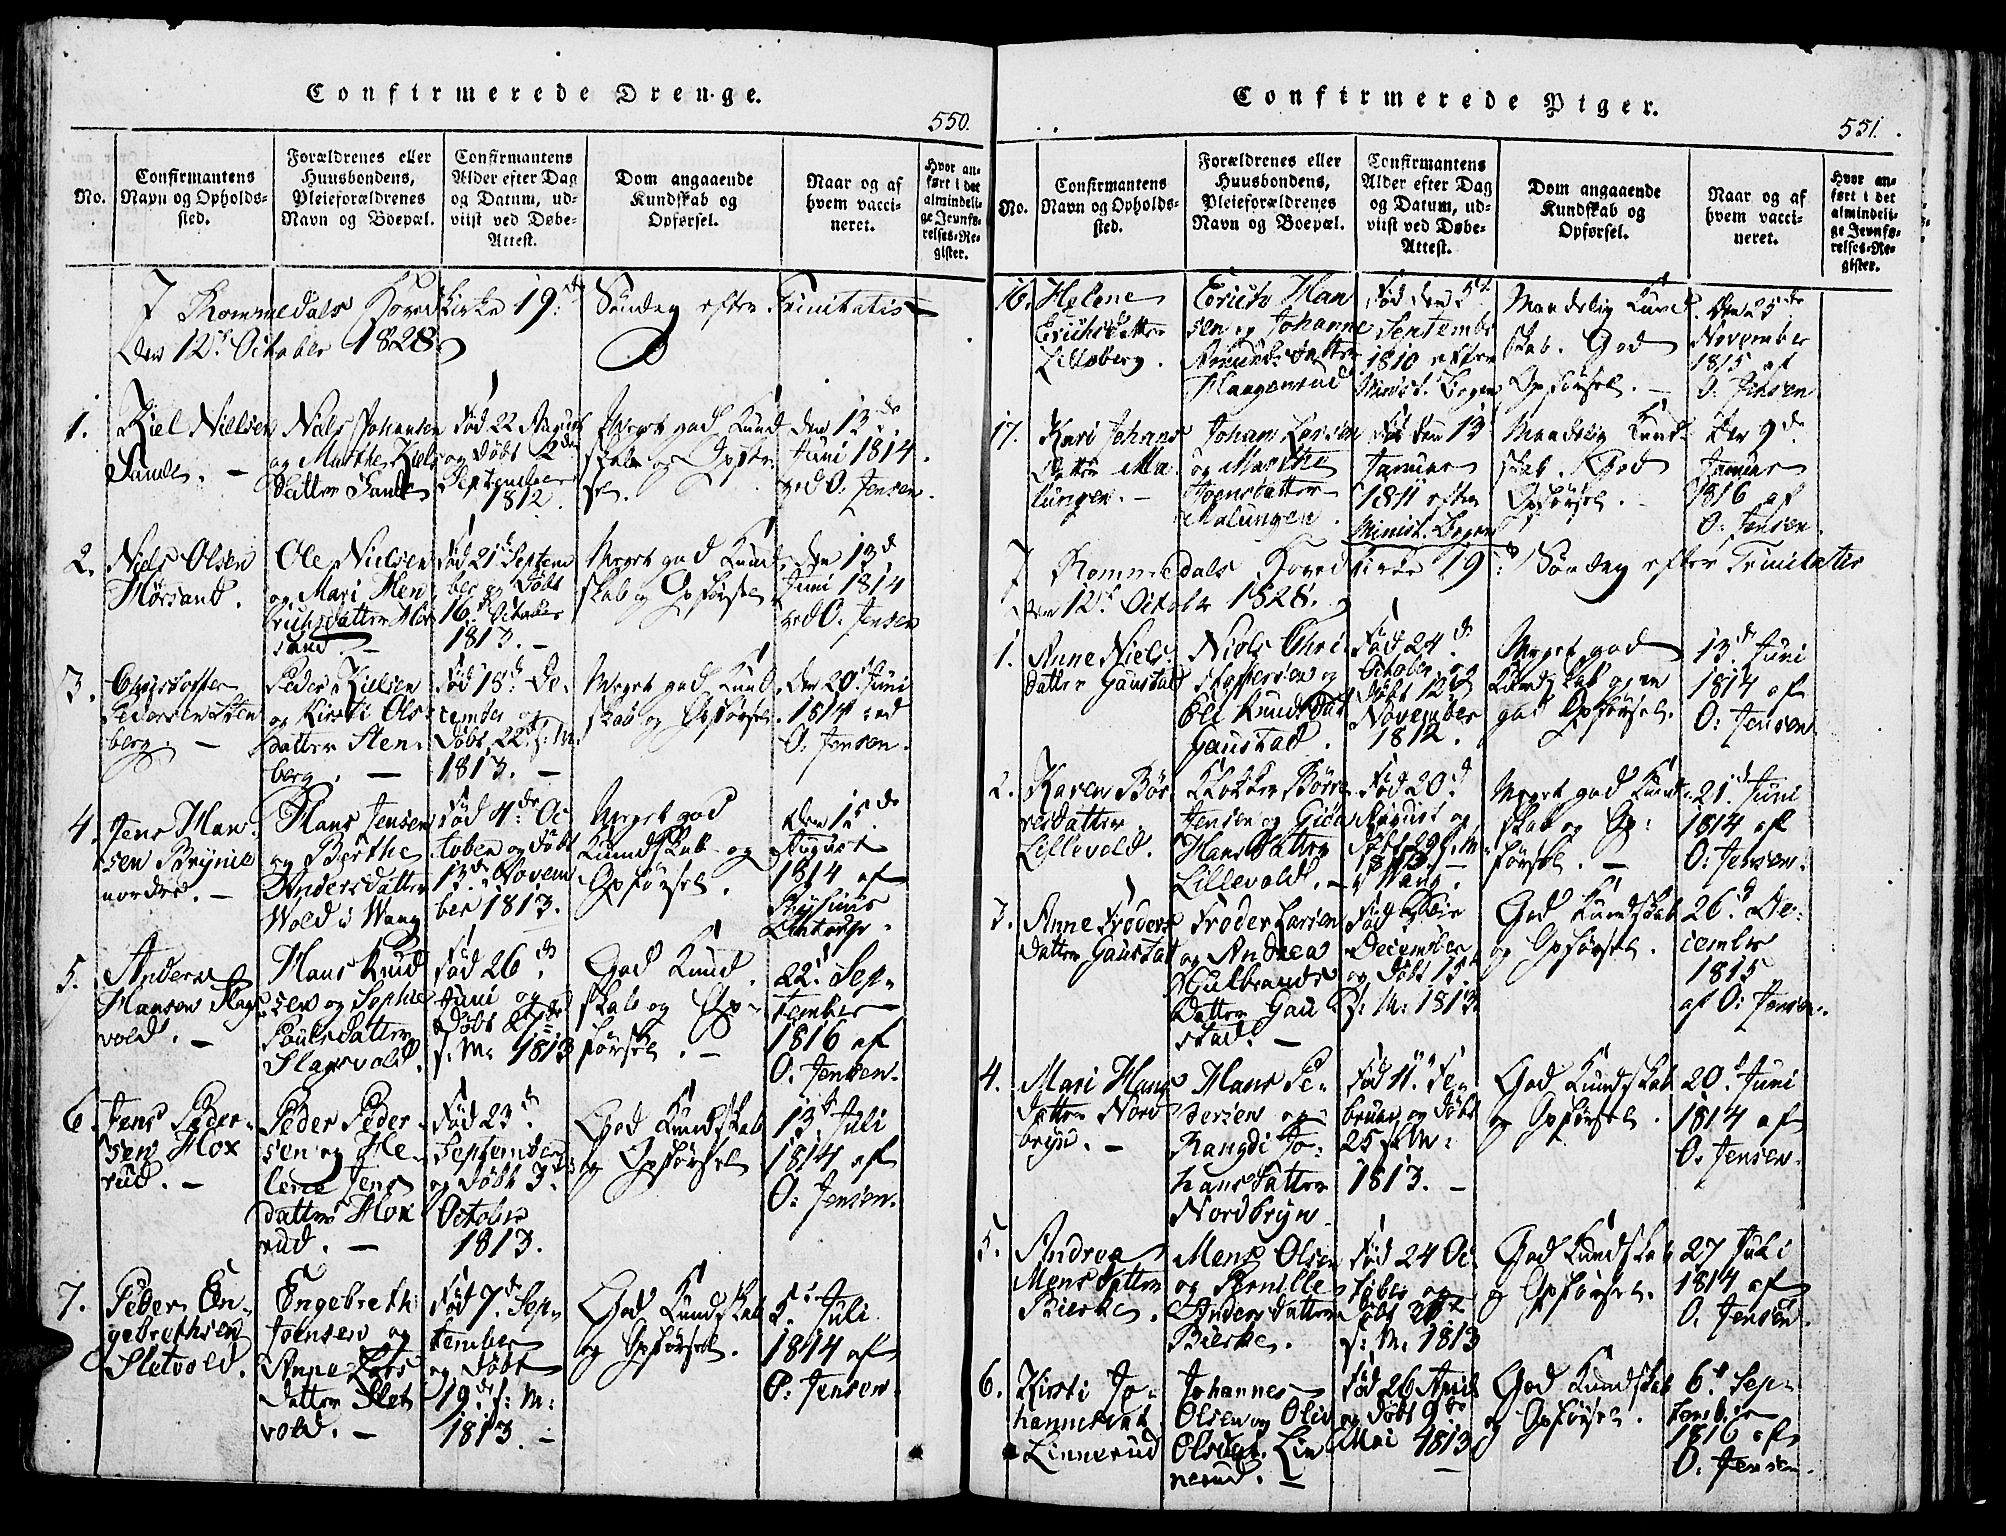 Confirmerede Drenge.
550.
No.
Confirmantens
Navn og Opholds-
sted.
Forældrenes eller
Huusbondens,
Pleieforældrenes
Navn og Boepæl.
Confirmantens
Alder efter Dag
og Datum, ud-
viist ved Døbe-
Attest.
Dom angaaende
Kundskab og
Opførsel.
Naar og af
hvem vacci-
neret.
Hvor an-
ført i det
almindeli-
ge Jevnfø-
relses-Re-
gister.
I Rommedals Hovedkirke 19de Søndag efter Trinitatis
den 12te October 1828
1.
Kiel Nielsen
Sande. -
Niels Johansen
og Marthe Kiels
datter Sande
Født 22 August
og døbt 2den
September
1812.
Meget god Kund
skab og Opfør-
sel.
den 13de
Juni 1814
ved O. Jensen.
2.
Niels Olsen
Hørsand.
Ole Nielsen
og Mari Hen
richsdatter Hør
sand. -
Født 21d Septem
ber og døbt
16d October
1813. -
Meget god Kund
skab og Opførsel
den 13d
Juni 1814
ved O. Jensen
3.
Christopher
Pedersen Sten
berg. -
Peder Kielsen
og Kirsti Ols
datter Sten-
berg. -
Født 18d De-
cember og
døbt 22d s: M:
1813. -
Meget god Kund
skab og Opførsel
den 20d Juni
1814 ved
O. Jensen.
4.
Jens Han-
sen Brynie
nordre. -
Hans Jensen
og Berthe
Andersdatter
Wold i Wang
Født 4de Oc
tober og døbt
13d Novem
ber 1813.
Meget god
Kundskab og
Opførsel.
den 15de
August
1814 af
5.
Anders
Hansen Slags
vold. -
Hans Knud
sen og Sophie
Poulsdatter
Slagsvold.
Født 26d
Juni og
døbt
s: M: 1813
God Kund
skab og Op-
førsel. -
22d Sep-
tember
1816 af
O. Jensen.
6.
Jens Peder-
sen Hox
rud. -
Peder Peder
sen og He-
lene Jens
datter Hox
rud. -
Født 23d
September
og døbt 3d
October
1813.
God Kundskab
og Opførsel
13d Juli
1814 af
O: Jensen.
7.
Peder En-
gebrethsen
Sletvold.
Engebreth
Joensen og
Anne Lars
datter Slet
vold. -
Født 7de Sep-
tember
og døbt
19de s: M:
1813. -
God Kundskab
og Opførsel.
5d Juli
1814 af
O: Jensen.
Confirmerede Piger.
551.
No.
Confirmantens
Navn og Opholds-
sted.
Forældrenes eller
Huusbondens,
Pleieforældrenes
Navn og Boepæl.
Confirmantens
Alder efter Dag
og Datum, ud-
viist ved Døbe-
Attest.
Dom angaaende
Kundskab og
Opførsel.
Naar og af
hvem vacci-
neret.
Hvor an-
ført i det
almindeli-
ge Jevnfø-
relses-Re-
gister.
16.
Helene
Erichsdatter
Lilleberg.
Erich Han
sen og Johanne
Amundsdatter
Haugenrud
Født den 5te
Septembr
1810 efter
Minist. Bogen
Maadelig Kund
skab. God
Opførsel. -
den 25de
November
1815 af
O. Jensen
17.
Kari Johans
datter Ma
lungen. -
Johan Larsen
og Marthe
Joensdatter
Malungen.
Født den 13
Januar
1811 efter
Minist. Bogen
Maadelig Kund-
skab. God
Opførsel.
Den 9d
Januar
1816 af
O: Jensen
I Rommedals Hovedkirke 19de Søndag efter Trinitatis
den 12te Octobr 1828.
1.
Anne Niels-
datter Gaustad
Niels Chri
stophersen og
Eli Knudsdat
Gaustad.
Født 24de
October og
døbt 12te
November
1812.
Meget god
Kundskab og en
god Opførsel.
13de Juni
1814 af
O: Jensen
2.
Karen Bør
resdatter
Lillevold.
Klokker Børre
Jensen og Giøa
Hansdatter
Lillevold. -
Født 20d
August og
døbt 29 s: M:
1813. -
i Wang.
Meget god Kund
skab og Op-
førsel. -
21de Juni
1814 af
O: Jensen.
3.
Anne Frøders
datter Gaustad
Frøder Larsen
og Andrea
Gulbrands
Datter Gau
stad. -
Født
December
og døbt 15te
s: M: 1813
God Kundskab
og Opførsel.
26d De-
cember
1815
af O: Jensen.
4.
Mari Hans
datter Nord
bryn. -
Hans Pe-
dersen og
Rangdi Jo-
hansdatter
Nordbryn
Født 11te Fe-
bruar og døbt
25 s: M:
1813. -
God Kundskab
og Opførsel.
20d Juni
1814 af
O. Jensen.
5.
Andrea
Mensdatter
Bierke.
Mens Olsen
og Pernille
Andersdatter
Bierke.
Født 24 Oc
tober og
døbt
s: M: 1813
God Kundskab
og Opførsel.
27 Juli
1814 af
O. Jensen.
6.
Kirsti Jo-
hannesdat.
Linnerud
Johannes
Olsen og Oliv
Olsdat. Lin
nerud. -
Født 26 April
og døbt 9de
Mai 1813
God Kundskab
og Opførsel.
6d Sep-
tember
1816 af
O. Jensen.